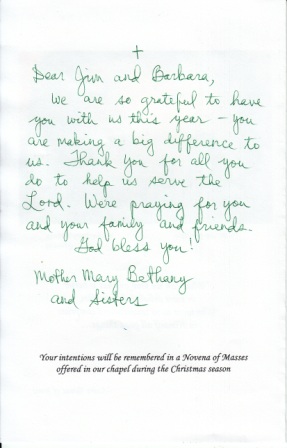 Dear Jim and Barbara,
We are so grateful to have
you with us this year – you
are making a big difference to
us. Thank you for all you
do to help us serve the
Lord. We're praying for you
and your family and friends.
God bless you!
Mother Mary Bethany
and Sisters
Your intentions will be remembered in a Novena of Masses
offered in our chapel during the Christmas season